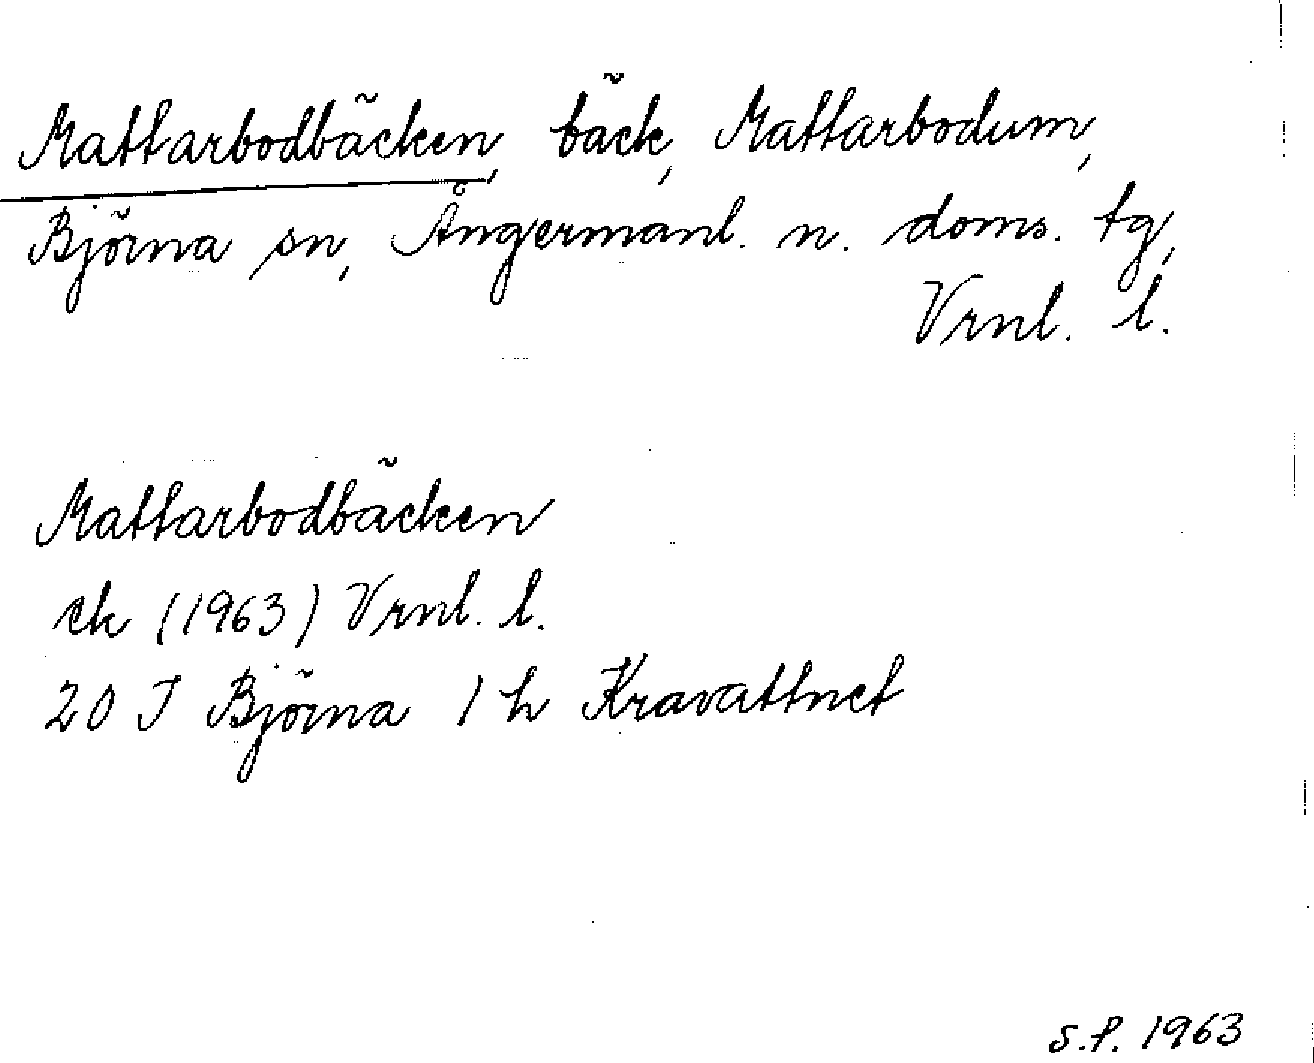 Mattarbodbäcken, bäck, Mattarbodum,
Björna sn, Ångermanl. n. doms. tg,
Vrnl. l.
Mattarbodbäcken
ek (1963) Vrnl. l.
20 I Björna 1 h Kravattnet
S.P. 1963